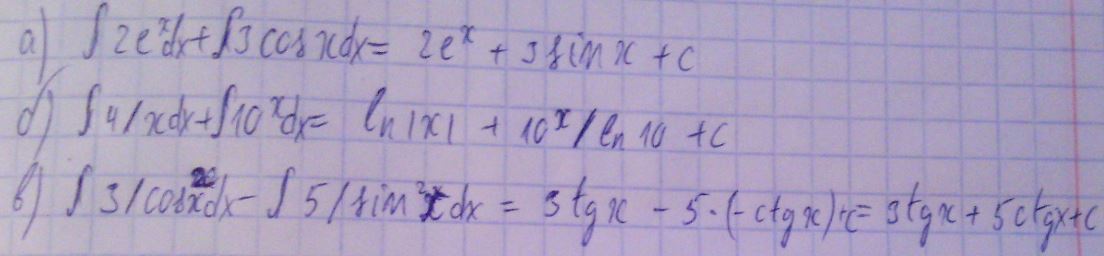 а) ∫2eˣdx+∫3cosxdx= 2eˣ + 3sinx + c
б) ∫4/xdx+∫10ˣdx= ln|x| + 10ˣ/ln10 + c
в) ∫3/cos²xdx-∫5/sin²xdx = 3tgx - 5·(-ctgx)+c= 3tgx + 5ctgx+c